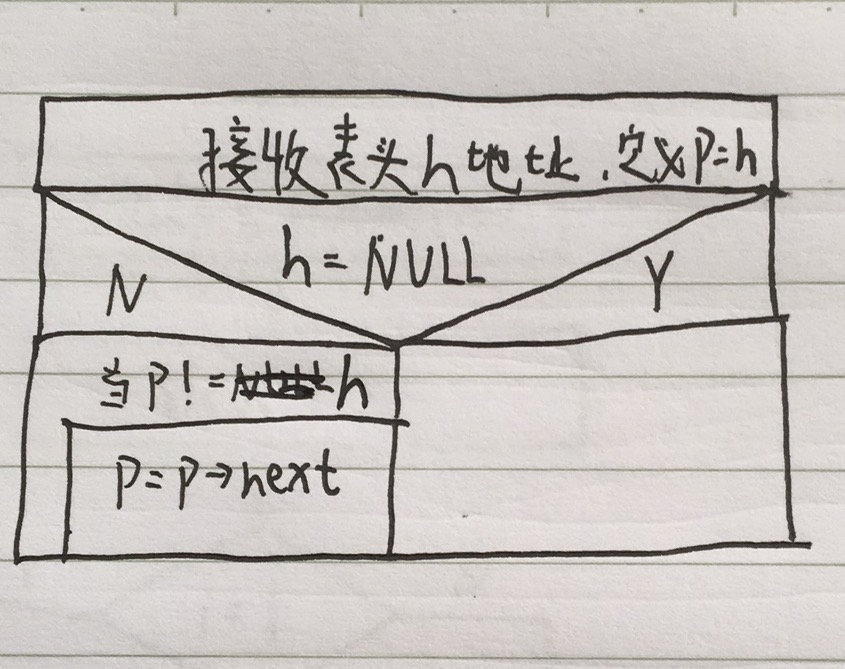 接收表头h地址.定义P=h
h=NULL
N
Y
当P!=h
P=P→next